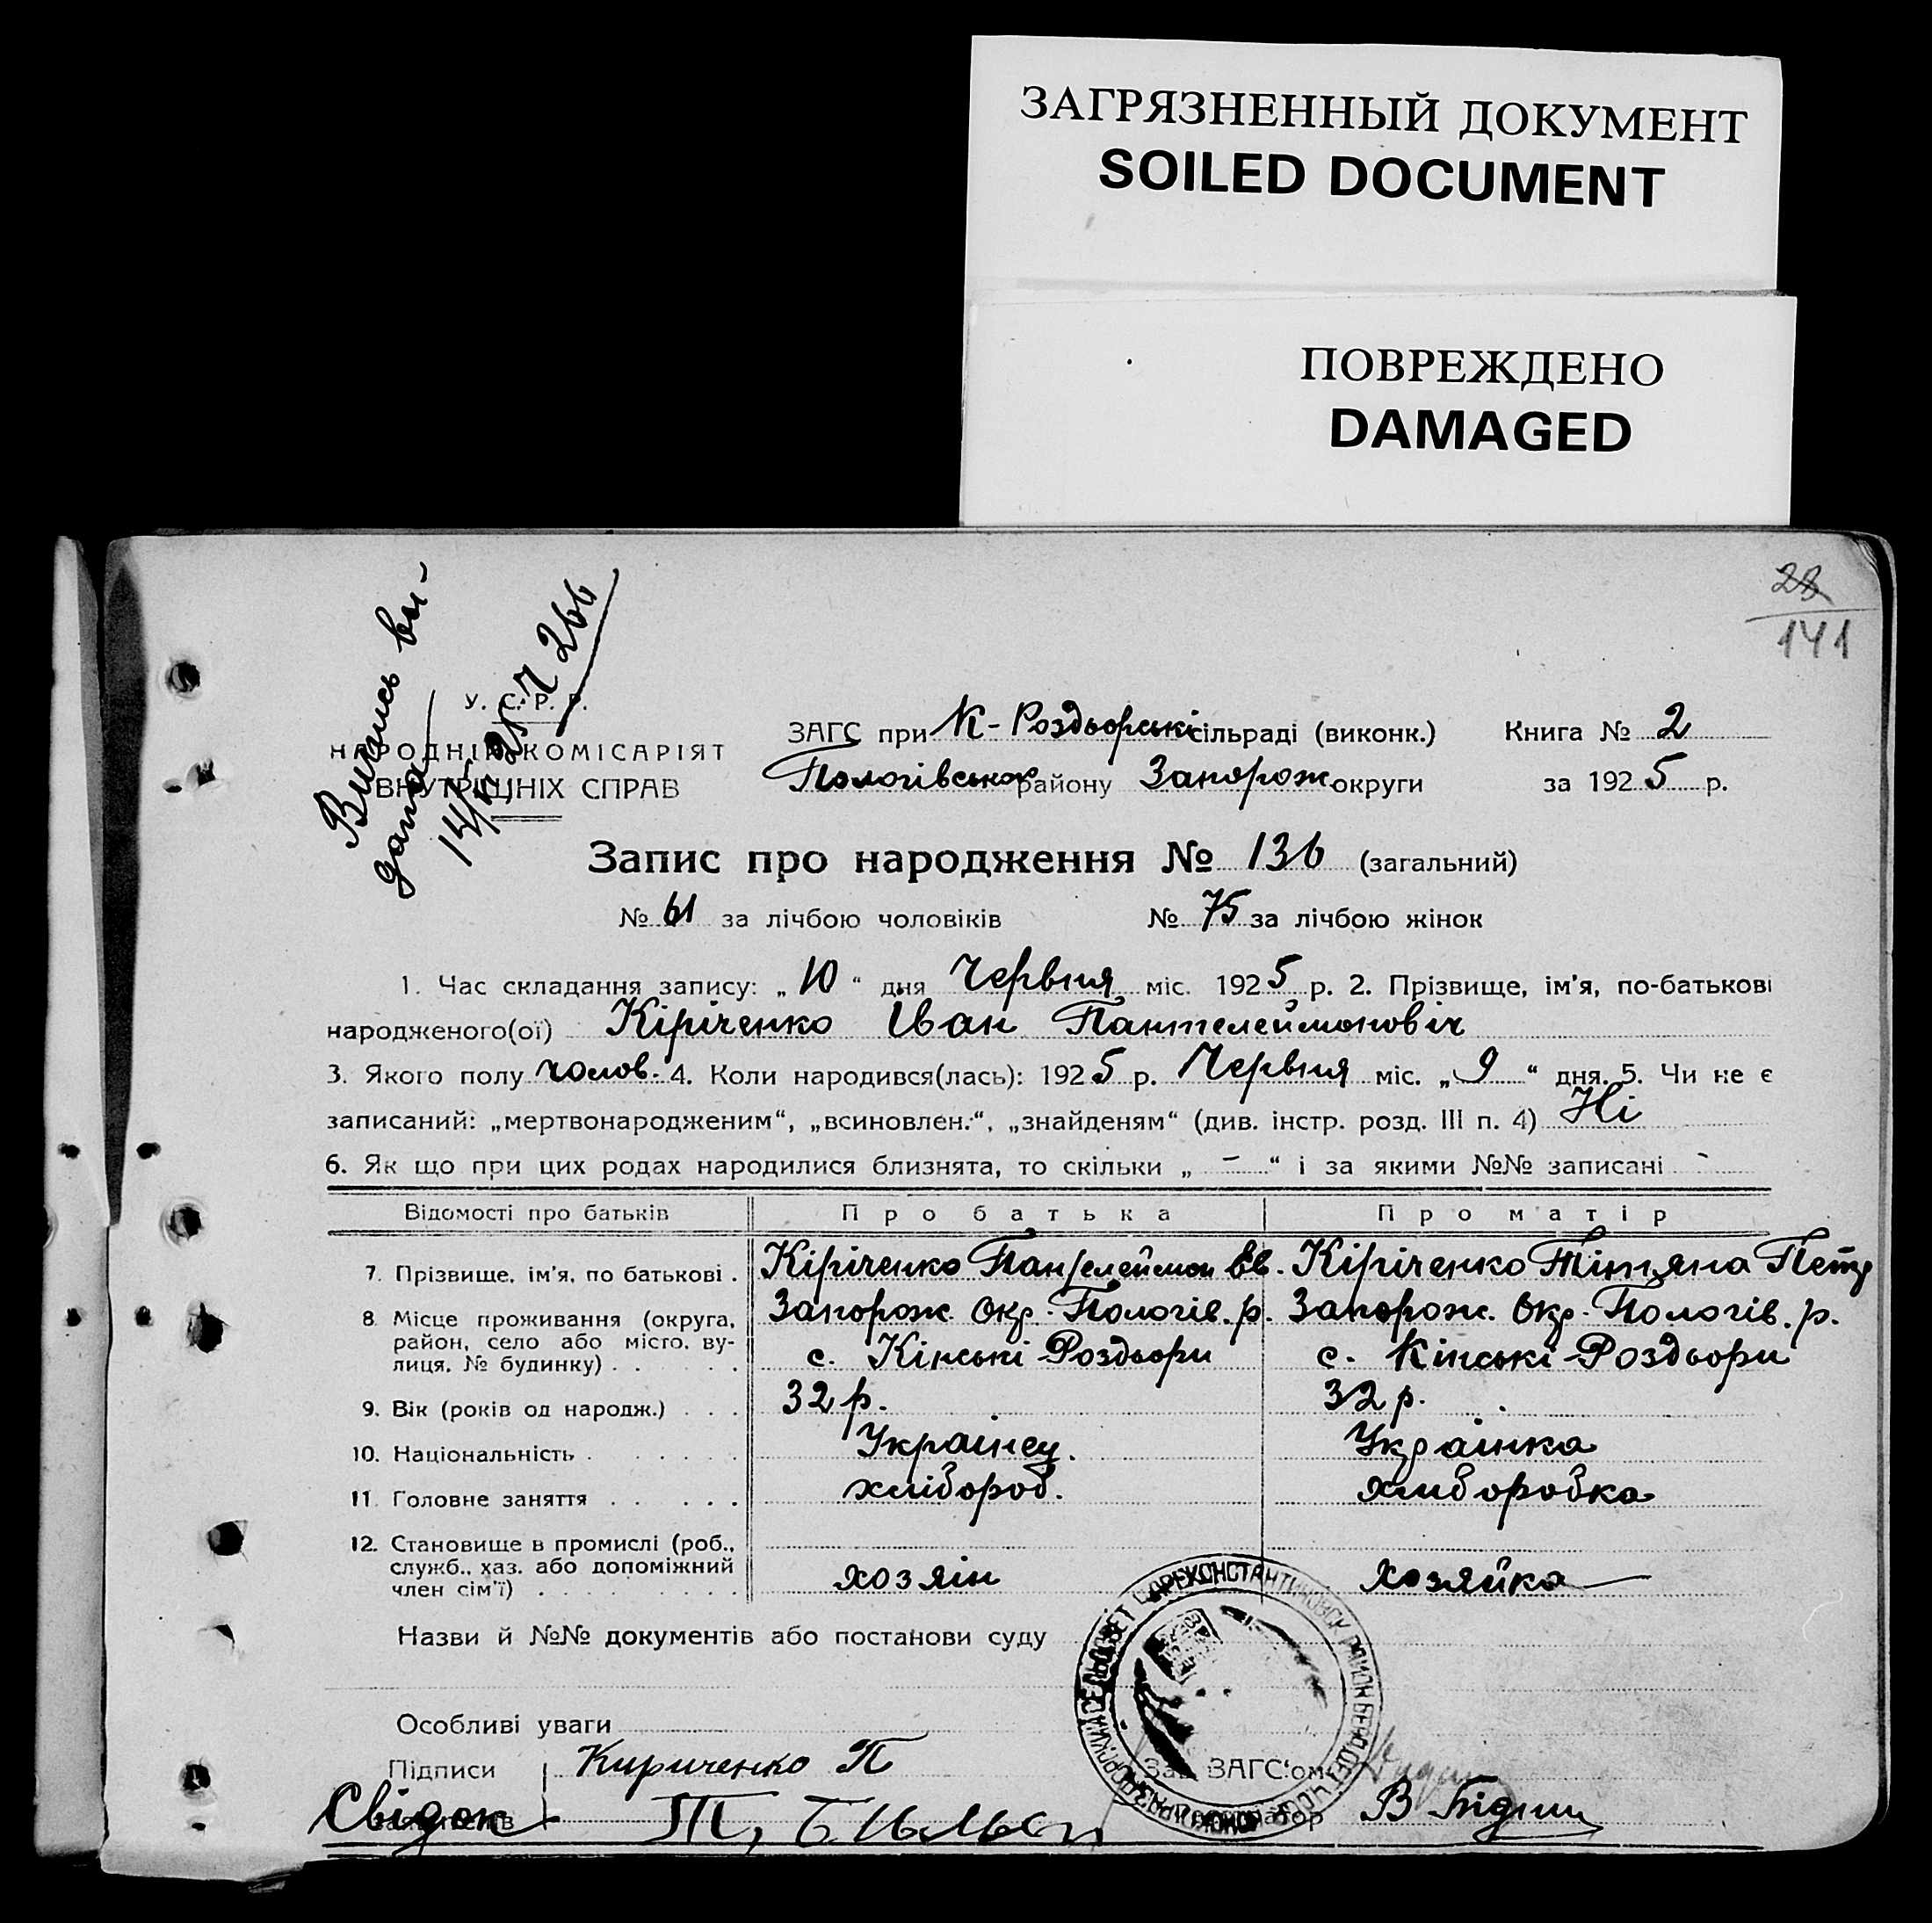 ЗАГРЯЗНЕННЫЙ ДОКУМЕНТ
SOILED DOCUMENT
ПОВРЕЖДЕНО
DAMAGED
28
141
Випись ви-
дана
№ 266
У. С. Р. Р.
НАРОДНІЙ КОМІСАРІЯТ
ВНУТРІШНІХ СПРАВ
ЗАГС при К-Роздьорські сільраді (виконк.) Книга № 2
Пологівськог району Запорож округи за 1925 р.
Запис про народження № 136 (загальний)
№ 61 за лічбою чоловіків № 75 за лічбою жінок
1. Час складання запису: „10“ дня Червня міс. 1925 р. 2. Прізвище, ім'я, по-батькові
народженого(ої) Кіріченко Іван Пантелеймоновіч
3. Якого полу чолов. 4. Коли народився(лась): 1925 р. Червня міс. „9“ дня. 5. Чи не є
записаний: „мертвонародженим“, „всиновлен.“, „знайденям“ (див. інстр. розд. III п. 4) Ні
6. Як що при цих родах народилися близнята, то скільки „ – “ і за якими №№ записані -
Відомості про батьків Про батька Про матір
7. Прізвище, ім'я, по батькові . Кіріченко Пантелеймон Єв. Кіріченко Тітяна Петр
8. Місце проживання (округа, район, село або місто, вулиця, № будинку) . . Запорож. Окр. Пологів. р. Запорож. Окр. Пологів. р.
с. Кінські-Роздьори с. Кінські-Роздьори
9. Вік (років од народж.) . . . 32 р. 32 р.
10. Національність . . . . . . Українец. Українка
11. Головне заняття . . . . . хлібороб. хлиборобка
12. Становище в промислі (роб.,
служб., хаз. або допоміжний
член сім'ї) . . . . . . . . хозяін хозяйка
Назви й №№ документів або постанови суду
Особливі уваги
Підписи Кириченко П Зав. ЗАГС'ом
Свідок Т,
В